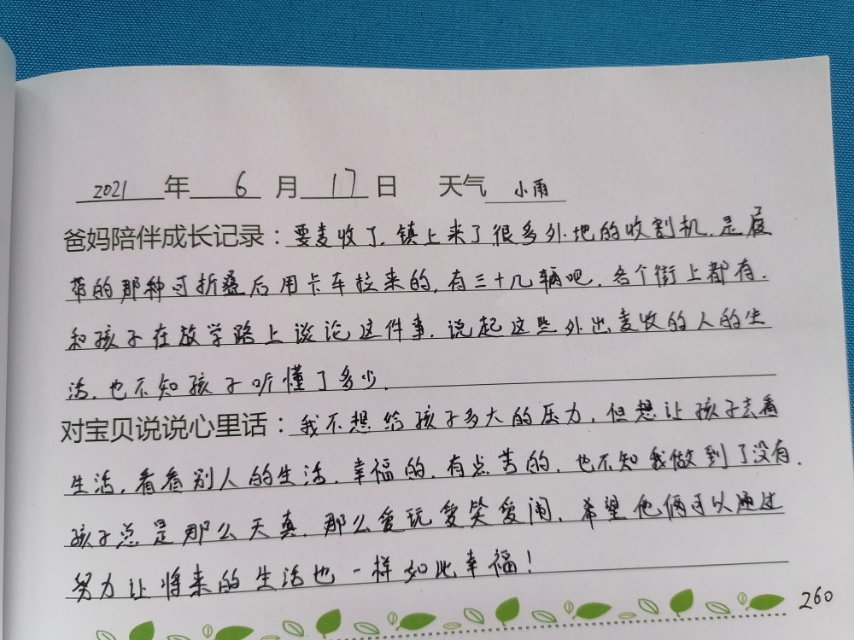 2021年6月17日 天气小雨
爸妈陪伴成长记录：要麦收了，镇上来了很多外地的收割机，是履
带的那种可折叠后用卡车拉来的，有三十几辆吧，各个街上都有，
和孩子在放学路上谈论这件事，说起这些外出麦收的人的生
活，也不知孩子听懂了多少。
对宝贝说说心里话：我不想给孩子多大的压力，但想让孩子去看
生活，看看别人的生活，幸福的，有点苦的，也不知我做到了没有，
孩子总是那么天真，那么爱玩爱笑爱闹，希望他俩可以通过
努力让将来的生活也一样如此幸福！
260